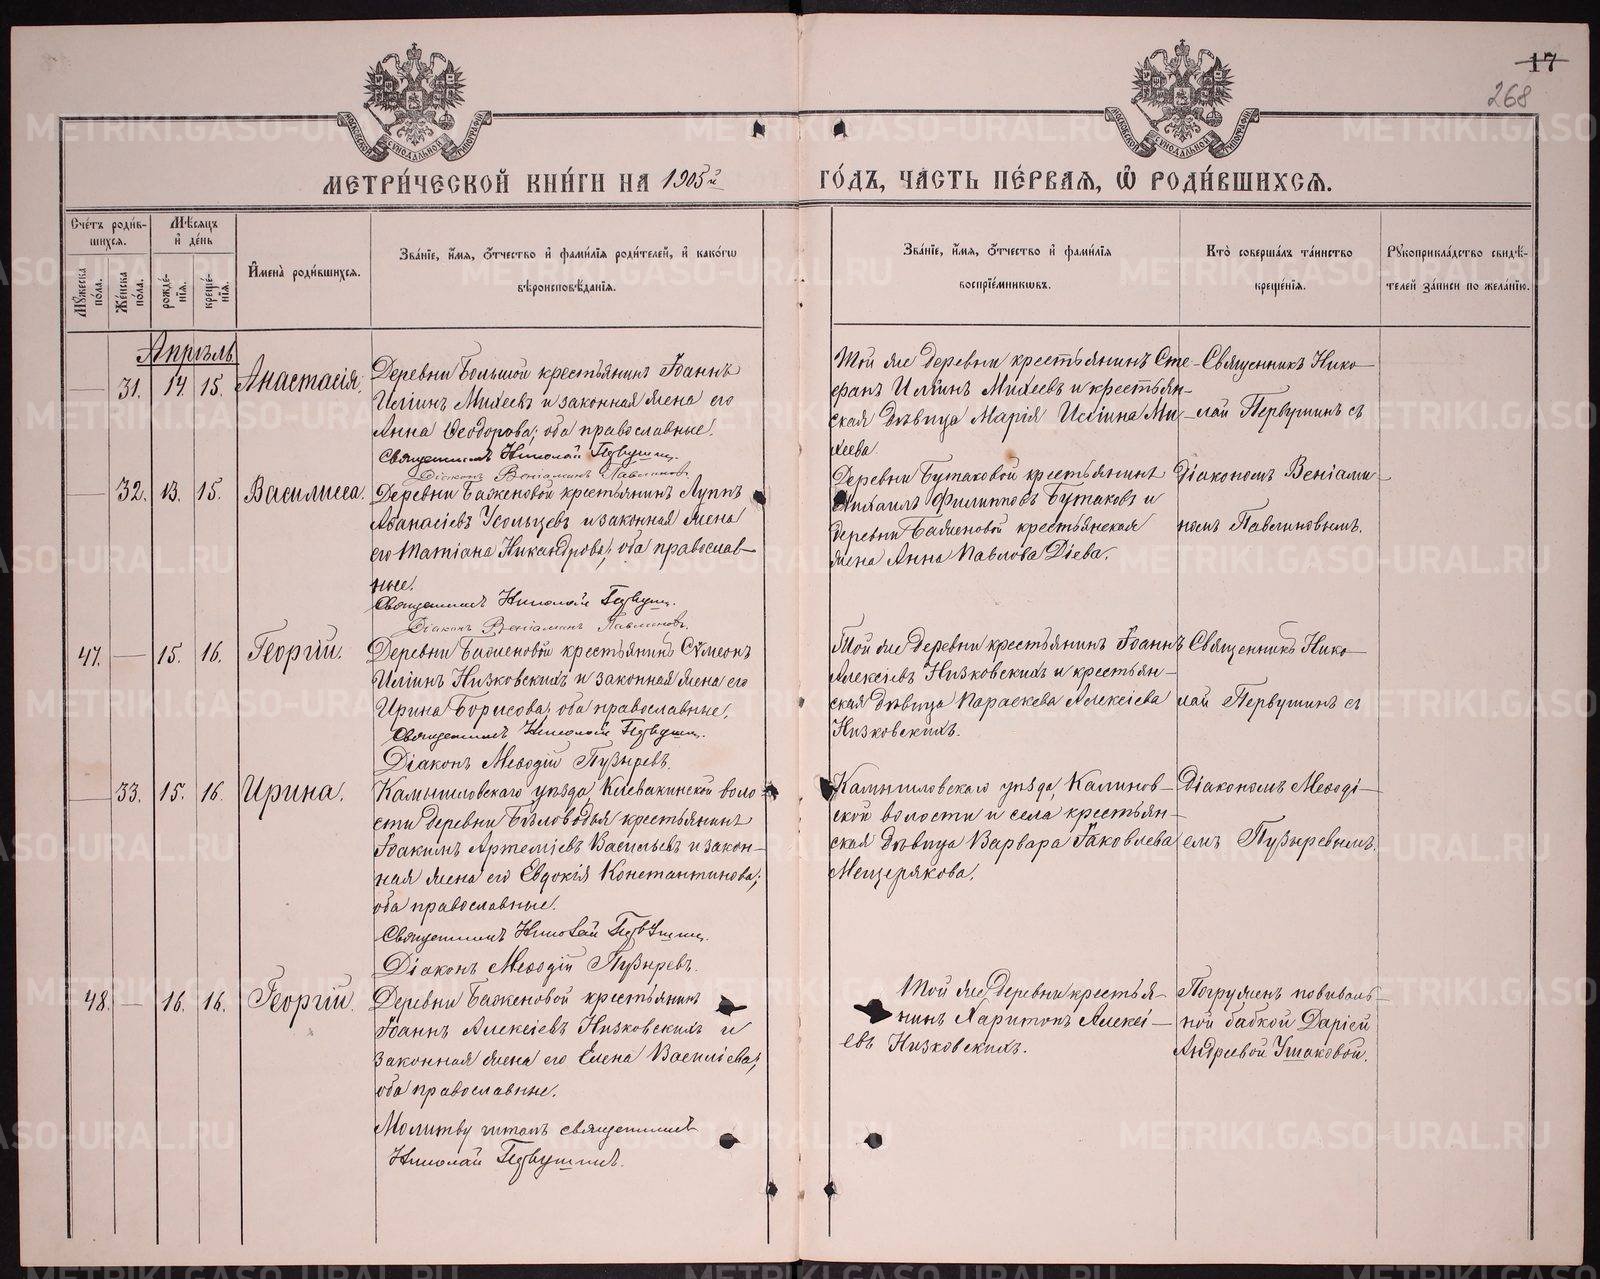 17
268
МЕТРИ́ЧЕСКОЙ КНИ́ГИ НА 1905й ГО́ДЪ, ЧА́СТЬ ПЕ́РВАЯ, Ѿ РОДИ́ВШИХСЯ.
Сче́тъ роди́в-
шихся.
Мѣ́сяцъ
и де́нь
Му́жеска по́ла.
Же́нска по́ла.
рожде́-
нїя.
креще́-
нїя.
Имена̀ роди́вшихся.
Зва́нїе, и́мя, о́тчество и фами́лїя роди́телей, и како́гѡ
вѣроисповѣ́данїя.
Зва́нїе, и́мя, о́тчество и фами́лїя
воспрїе́мникѡвъ.
Кто̀ соверша́лъ та́инство
креще́нїя.
Рукоприкла́дство свидѣ́-
телей за́писи по жела́нїю.
Апрѣль
31. 14. 15. Анастасія.
Деревни Большой крестьянинъ Іоаннъ
Иліинъ Михеевъ и законная жена его
Анна Ѳеодорова; оба православные.
Священникъ Николай Первушин.
Діаконъ Веніаминъ Павлиновъ.
Той же деревни крестьянинъ Сте-
фанъ Иліинъ Михеевъ и крестьян-
ская дѣвица Марія Иліина Ми-
хеева.
Священникъ Нико-
лай Первушинъ съ
32. 13. 15. Василисса.
Деревни Баженовой крестьянинъ Луппъ
Аѳанасіевъ Усольцевъ и законная жена
его Татіана Никандрова; оба православ-
ные.
Священникъ Николай Первуш.
Діаконъ Веніаминъ Павлиновъ.
Деревни Бутаковой крестьянинъ
Михаилъ Филипповъ Бутаковъ и
деревни Баженовой крестьянская
жена Анна Павлова Діева.
Діакономъ Веніами-
номъ Павлиновымъ.
47. 15. 16. Георгій.
Деревни Баженовой крестьянинъ Сѵмеонъ
Иліинъ Низковскихъ и законная жена его
Ирина Борисова; оба православные.
Священникъ Николай Первушин.
Діаконъ Меѳодій Пузыревъ.
Той же деревни крестьянинъ Іоаннъ
Алексіевъ Низковскихъ и крестьян-
ская дѣвица Параскева Алексіева
Низковскихъ.
Священникъ Нико-
лай Первушинъ съ
33. 15. 16. Ирина.
Камышловскаго уѣзда Клевакинской воло-
сти деревни Бѣловодья крестьянинъ
Іоакимъ Артеміевъ Васильевъ и закон-
ная жена его Евдокія Константинова;
оба православные.
Священникъ Николай Первушин.
Діаконъ Меѳодій Пузыревъ.
Камышловскаго уѣзда, Калинов-
ской волости и села крестьян-
ская дѣвица Варвара Іаковлева
Мещерякова.
Діакономъ Меѳоді-
емъ Пузыревымъ.
48. 16. 16. Георгій.
Деревни Баженовой крестьянинъ
Іоаннъ Алексіевъ Низковскихъ и
законная жена его Елена Василіева;
оба православные.
Молитву читалъ священникъ
Николай Первушинъ.
Той же деревни крестья-
нинъ Харитонъ Алексі-
евъ Низковскихъ.
Погруженъ повиваль-
ной бабкой Даріей
Андреевой Ушаковой.